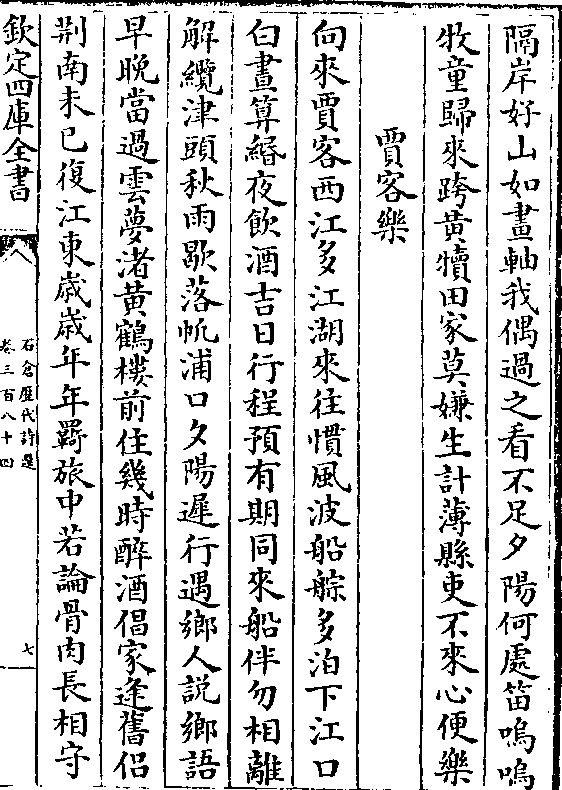 隔岸好山如畫軸我偶過之看不足夕陽何處笛嗚嗚
牧童歸來跨黃犢田家莫嫌生計薄縣吏不來心便樂
賈客樂
向來賈客西江多江湖來往慣風波船䑸多泊下江口
白晝算緡夜飲酒吉日行程預有期同來船伴勿相離
解纜津頭秋雨歇落帆浦口夕陽遲行遇鄉人說鄉語
早晚當過雲夢渚黃鶴樓前住幾時醉酒倡家逢舊侣
荆南未已復江東歲歲年年羇旅中若論骨肉長相守
欽定四庫全書
石倉歷代詩選
卷三百八十四
七